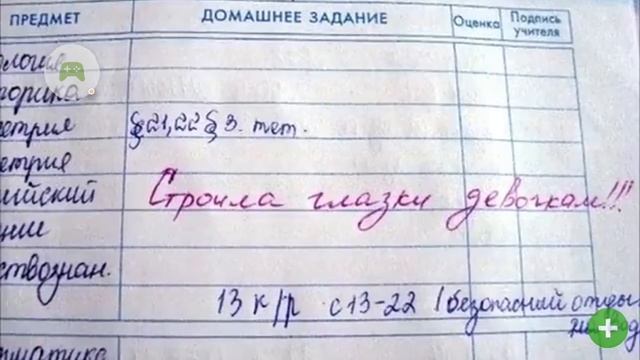 ПРЕДМЕТ ДОМАШНЕЕ ЗАДАНИЕ Оценка Подпись учителя
орика
етрия §21,22 § 3. тет.
етрия
ийский Строила глазки девочкам!!!
ствознан.
13 к/р с 13-22 / безопасный
матика